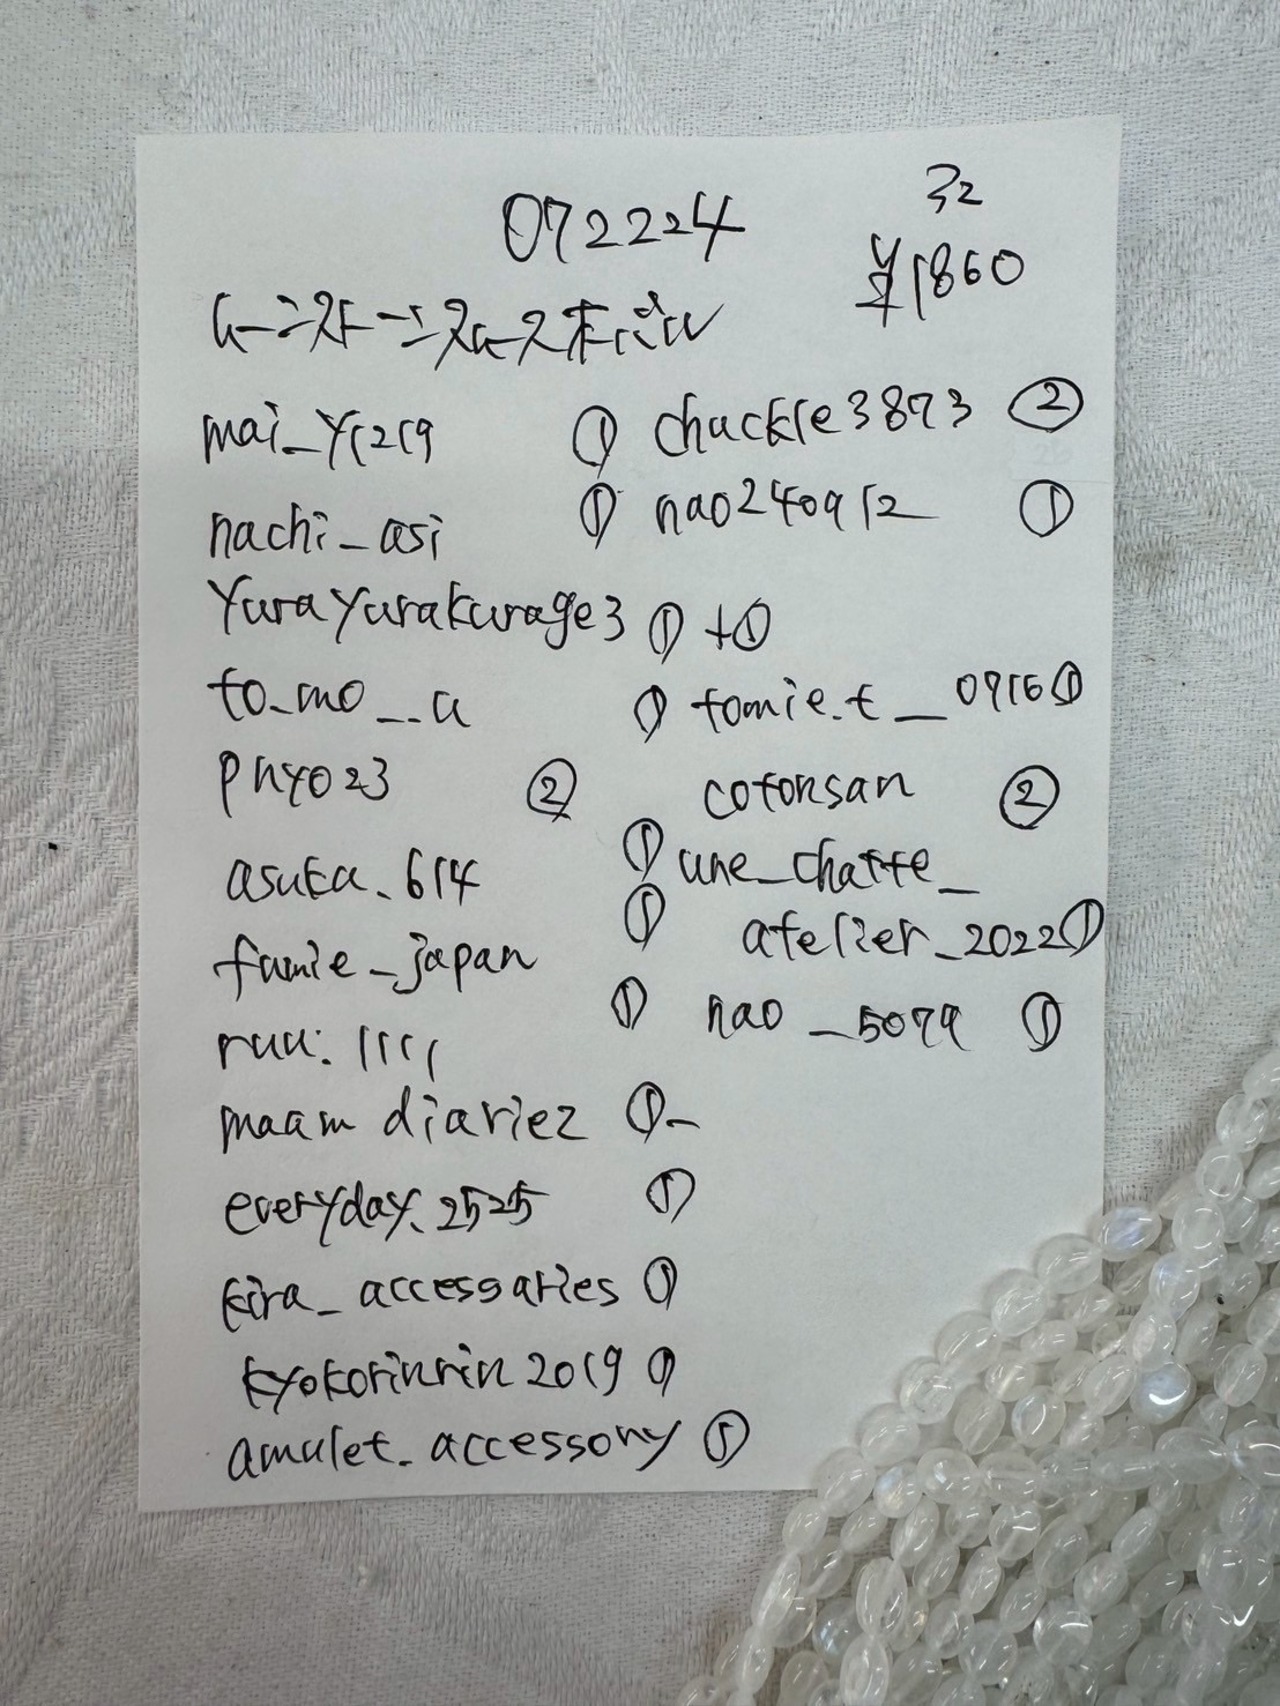 072224
32
¥1860
mai_y1219 ① chuckle3873 ②
nachi_asi ① nao240912 ①
yurayurakurage3 ① +①
to_mo__a ① tomie.t__0916 ①
pnyo23 ② cotonsan ②
asuka.614 ① une_chatte_
fumie_japan ① atelier_2022 ①
ruu.1111 ① nao_5079 ①
maam diariez ①-
everyday.2525 ①
kira_accessories ①
kyokorinrin2019 ①
amulet.accessory ①